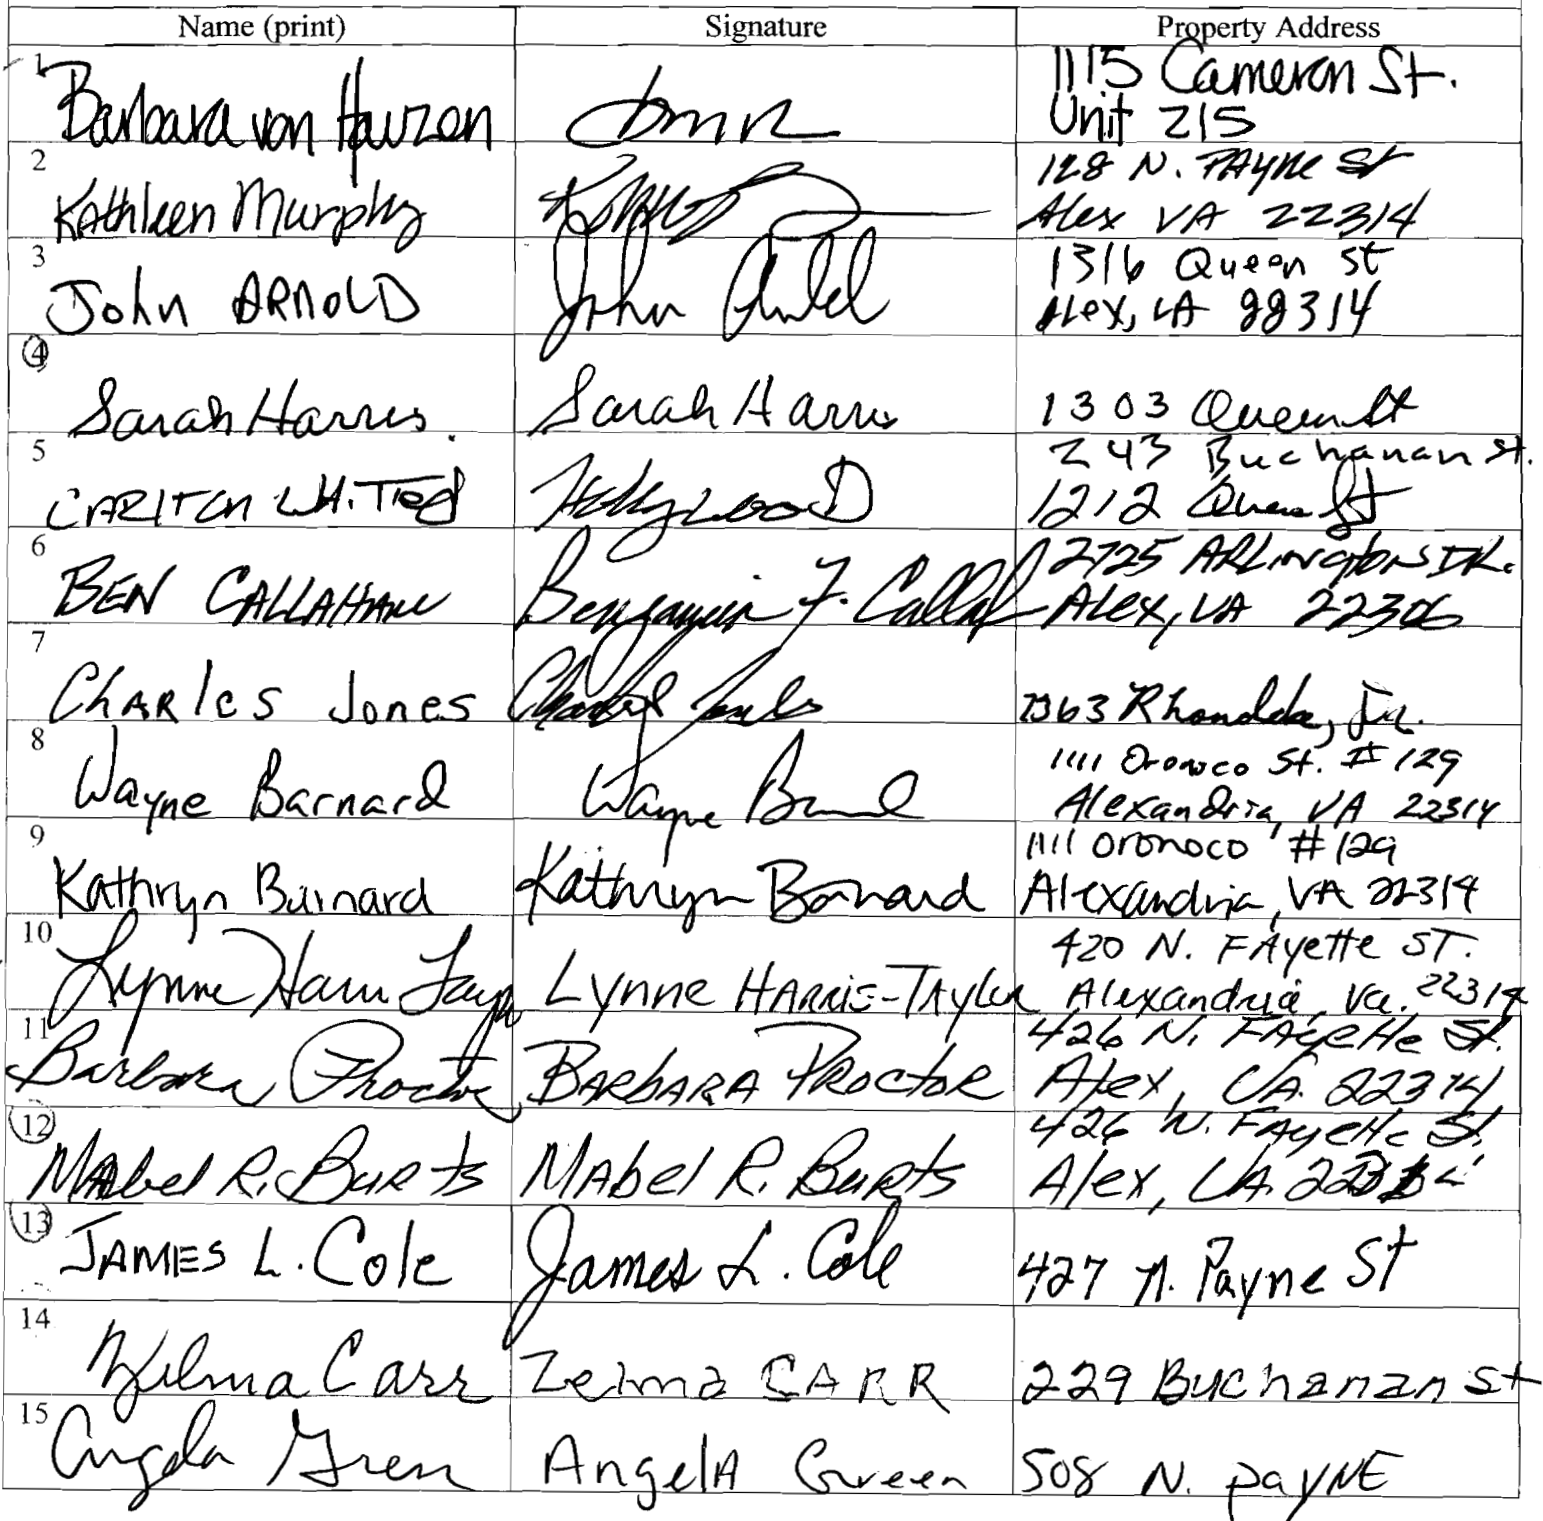 Name (print) Signature Property Address
1 Barbara von 1115 Cameron St.
Unit 215
2 Kathleen Murphy 128 N. PAYNE St
Alex VA 22314
3 John ARNOLD John 1316 Queen St
Alex, VA 22314
4 Sarah Harris. Sarah Harris 1303 Queen St
5 243 Buchanan St.
CARLTON HollywooD 1212 Queen St
6 BEN CALLAHAN Benjamin F. 2725 ARLINGTON DR.
Alex, VA 22306
7 CHARles Jones 7363 Rhondda,
8 Wayne Barnard Wayne 1111 Oronoco St. #129
Alexandria, VA 22314
9 Kathryn Barnard Kathryn Barnard 1111 Oronoco #129
Alexandria, VA 22314
10 Lynne LYnne HARRIS-TAylor 420 N. FAyette ST.
Alexandria, Va. 22314
11 Barbara Proctor BARbARA PRoctoR 426 N. FAyette St.
Alex, VA. 22314
12 MAbel R. BuRts MAbel R. BuRts 426 N. FAyette St.
Alex, VA.
13 JAMES L. Cole James L. Cole 427 N. Payne St
14 Zelma Carr Zelma CARR 229 Buchanan St
15 Angela Green AngelA Green 508 N. PAYNE